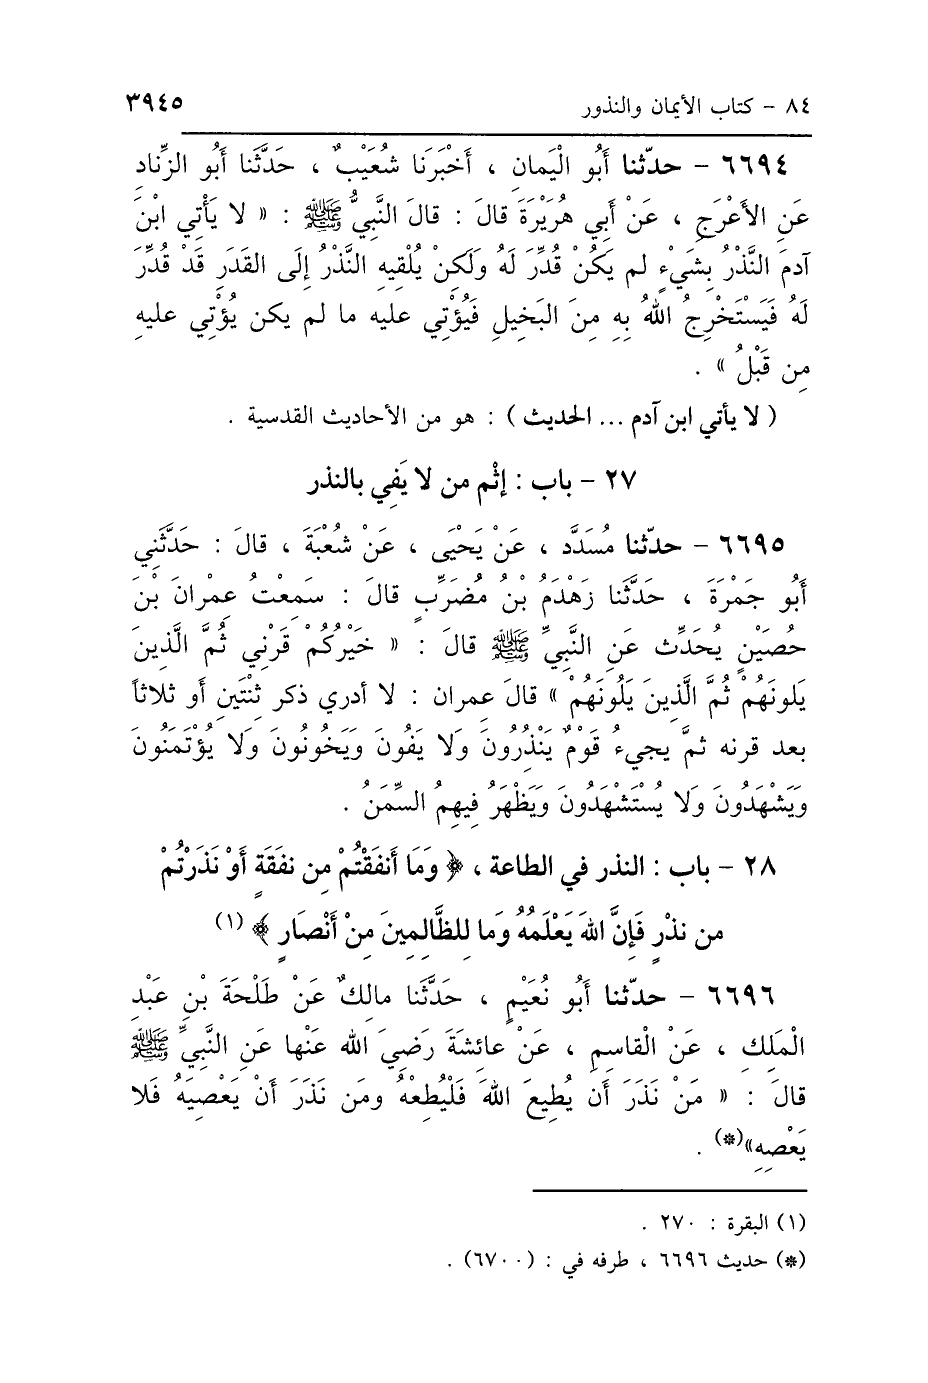 ٨٤ - كتاب الأيمان والنذور ٣٩٤٥
٦٦٩٤ - حدّثنا أَبُو الْيَمانِ ، أَخْبَرَنَا شُعَيْبٌ ، حَدَّثَنا أَبُو الزِّنادِ
عَنِ الأَعْرَجِ ، عَنْ أَبِي هُرَيْرَةَ قالَ : قالَ النَّبِيُّ ﷺ : « لا يَأْتي ابْنَ
آدمَ النَّذْرُ بِشَيْءٍ لم يَكُنْ قُدِّرَ لَهُ ولَكِنْ يُلْقِيهِ النَّذْرُ إِلَى القَدَرِ قَدْ قُدِّرَ
لَهُ فَيَسْتَخْرِجُ اللهُ بِهِ مِنَ البَخِيلِ فَيُؤْتِي عليه ما لم يكن يُؤْتِي عليهِ
مِن قَبْلُ » .
( لا يأتي ابن آدم ... الحديث ) : هو من الأحاديث القدسية .
٢٧ - باب : إثْم من لا يَفِي بالنذر
٦٦٩٥ - حدّثنا مُسَدَّد ، عَنْ يَحْيَى ، عَنْ شُعْبَةَ ، قالَ : حَدَّثَنِي
أَبُو جَمْرَةَ ، حَدَّثَنا زَهْدَمُ بْنُ مُضَرِّبٍ قالَ : سَمِعْتُ عِمْرانَ بْنَ
حُصَيْنٍ يُحَدِّث عَنِ النَّبِيِّ ﷺ قالَ : « خَيْرُكُمْ قَرْنِي ثُمَّ الَّذِينَ
يَلونَهُمْ ثُمَّ الَّذِينَ يَلُونَهُمْ » قالَ عمران : لا أدري ذكر ثِنْتَينِ أو ثلاثاً
بعد قرنه ثمَّ يجيءُ قَوْمٌ يَنْذُرُونَ وَلا يَفُونَ وَيَخُونُونَ وَلا يُؤْتَمَنُونَ
وَيَشْهَدُونَ وَلا يُسْتَشْهَدُونَ وَيَظْهَرُ فِيهِمُ السِّمَنُ .
٢٨ - باب : النذر في الطاعة ، ﴿ وَمَا أَنفَقْتُمْ مِن نفَقَةٍ أَوْ نَذَرْتُمْ
من نذْرٍ فَإِنَّ اللهَ يَعْلَمُهُ وَمَا لِلظَّالِمِينَ مِنْ أَنْصَارٍ ﴾ (١)
٦٦٩٦ - حدّثنا أَبُو نُعَيْمٍ ، حَدَّثَنا مالِكٌ عَنْ طَلْحَةَ بْنِ عَبْدِ
الْمَلِكِ ، عَنْ الْقاسِمِ ، عَنْ عائشَةَ رَضيَ الله عَنْها عَنِ النَّبِيِّ ﷺ
قالَ : « مَنْ نَذَرَ أَن يُطِيعَ اللهَ فَلْيُطِعْهُ ومَن نَذَرَ أَنْ يَعْصِيَهُ فَلا
يَعْصِهِ»(*) .
(١) البقرة : ٢٧٠ .
(*) حديث ٦٦٩٦ ، طرفه في : (٦٧٠٠) .